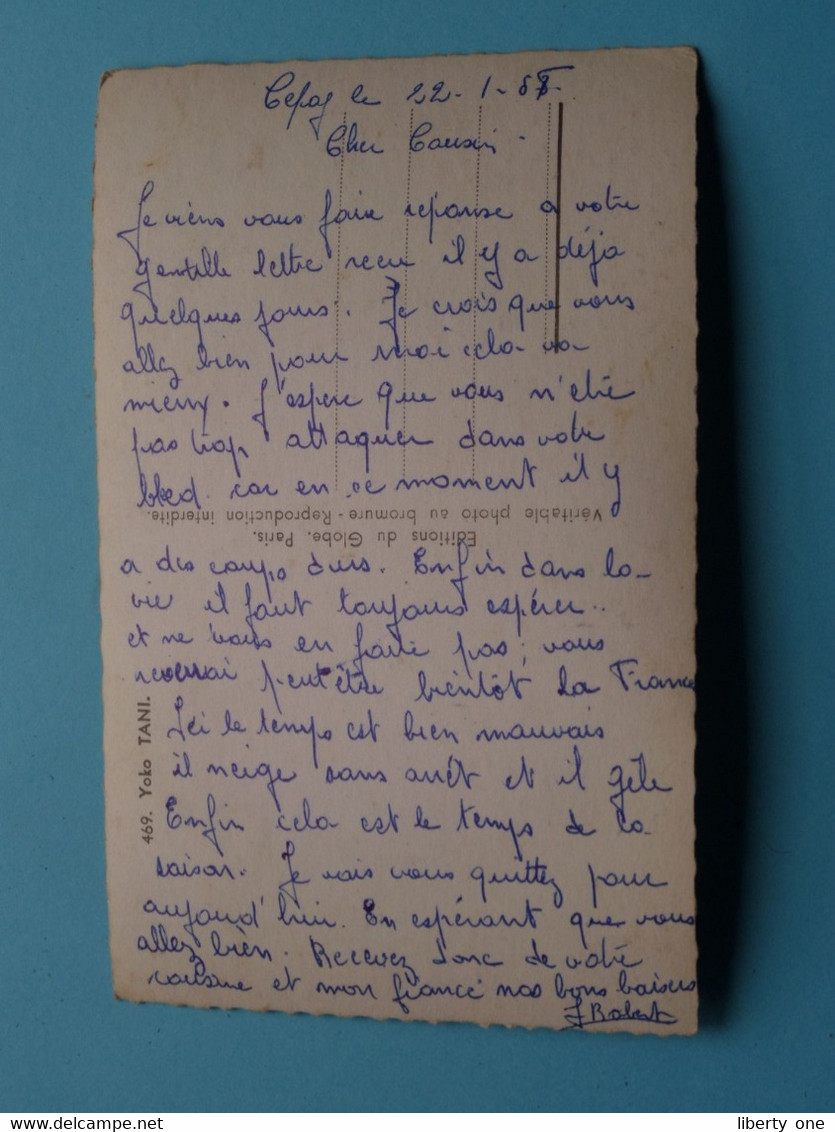 le 22-1-58-
Cher Cousin -
Je viens vous faire reponse a votre
gentille lettre recu il y a déja
quelques jours. Je crois que vous
allez bien pour moi cela va
mieux. J'espere que vous n'etre
pas trop attaquer dans votre
bled car en ce moment il y
Véritable photo au bromure - Reproduction interdite.
Editions du Globe, Paris.
a des coups durs. Enfin dans la
vie il faut toujours espérer..
et ne vous en faite pas, vous
reverrai peut être bientôt la France
469. Yoko TANI.
Ici le temps est bien mauvais
il neige sans arrêt et il gèle
Enfin cela est le temps de la
saison. Je vais vous quittez pour
aujourd'hui. En espérant que vous
allez bien. Recevez donc de votre
cousine et mon fiancé nos bons baisers
J Robert
liberty one